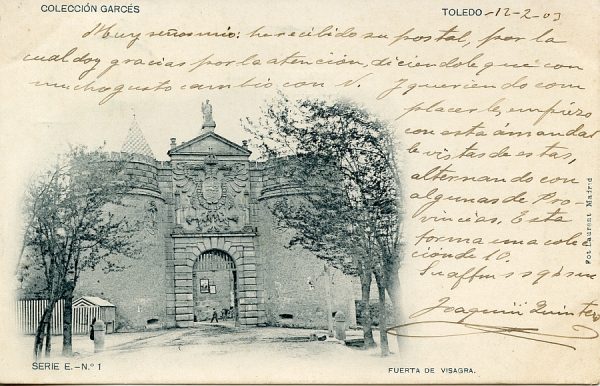 COLECCIÓN GARCÉS
TOLEDO.-12-2-03
Muy señor mio: he recibido su postal, por la
cual doy gracias por la atención, diciendole que con
mucho gusto cambio con V. y queriendo com
placerle, empiezo
con esta á mandar
le vistas de estas,
alternando con
algunas de Pro
vincias. Esta
forma una cole
cion de 10.
Su affmo s s q b s m
Joaquin Quintero
Fot Laurent Madrid
SERIE E.-N.º 1
FUERTA DE VISAGRA.